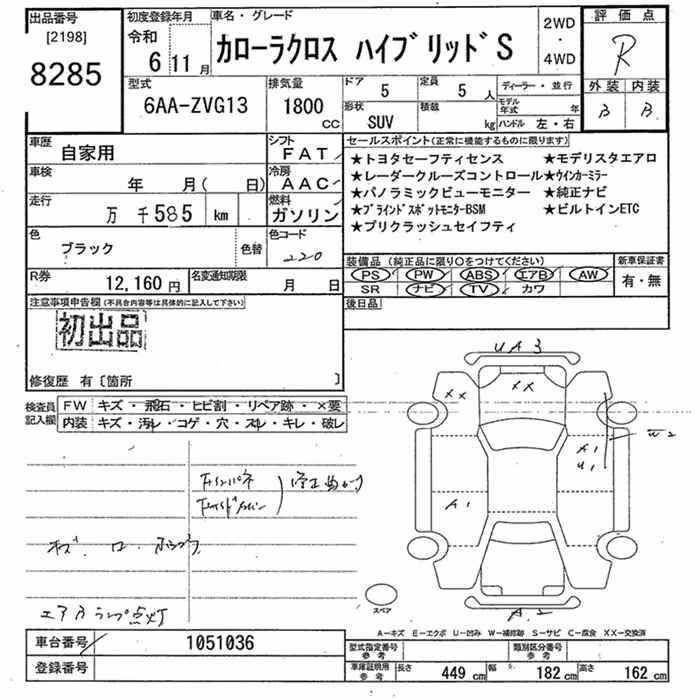 出品番号
[2198]
8285
初度登録年月
令和
6 11月
車名・グレード
カローラクロス ハイブリッドS
2WD
・
4WD
評価点
R
外装 内装
B B
型式
6AA-ZVG13
排気量
1800
CC
ドア
5
定員
5人
形状
SUV
積載
kg
ディーラー・並行
モデル年式 年
ハンドル 左・右
車歴
自家用
シフト
FAT
車検
年 月( 日)
冷房
AAC
走行
万 千585 km
燃料
ガソリン
色
ブラック
色替
色コード
220
R券
12,160円
名変通知期限
月 日
セールスポイント(正常に機能するものに限ります)
★トヨタセーフティセンス ★モデリスタエアロ
★レーダークルーズコントロール★ウインカーミラー
★パノラミックビューモニター ★純正ナビ
★ブラインドスポットモニターBSM ★ビルトインETC
★プリクラッシュセイフティ
装備品(純正品に限り○をつけてください)
PS PW ABS エアB AW
SR ナビ TV カワ
新車保証書
有・無
後日品
注意事項申告欄(不具合内容等は具体的に記入して下さい)
初出品
修復歴 有〔箇所 〕
検査員記入欄
FW キズ・飛石・ヒビ割・リペア跡・×要
内装 キズ・汚レ・コゲ・穴・スレ・キレ・破レ
キズ
エアBランプ点灯
UA3
XX
XX
W2
A1
U1
A1
A2
スペア
A-キズ E-エクボ U-凹み W-補修跡 S-サビ C-腐食 XX-交換済
車台番号 1051036
登録番号
型式指定番号 参考
類別区分番号 参考
車庫証明用 参考
長さ 449cm 幅 182cm 高さ 162cm